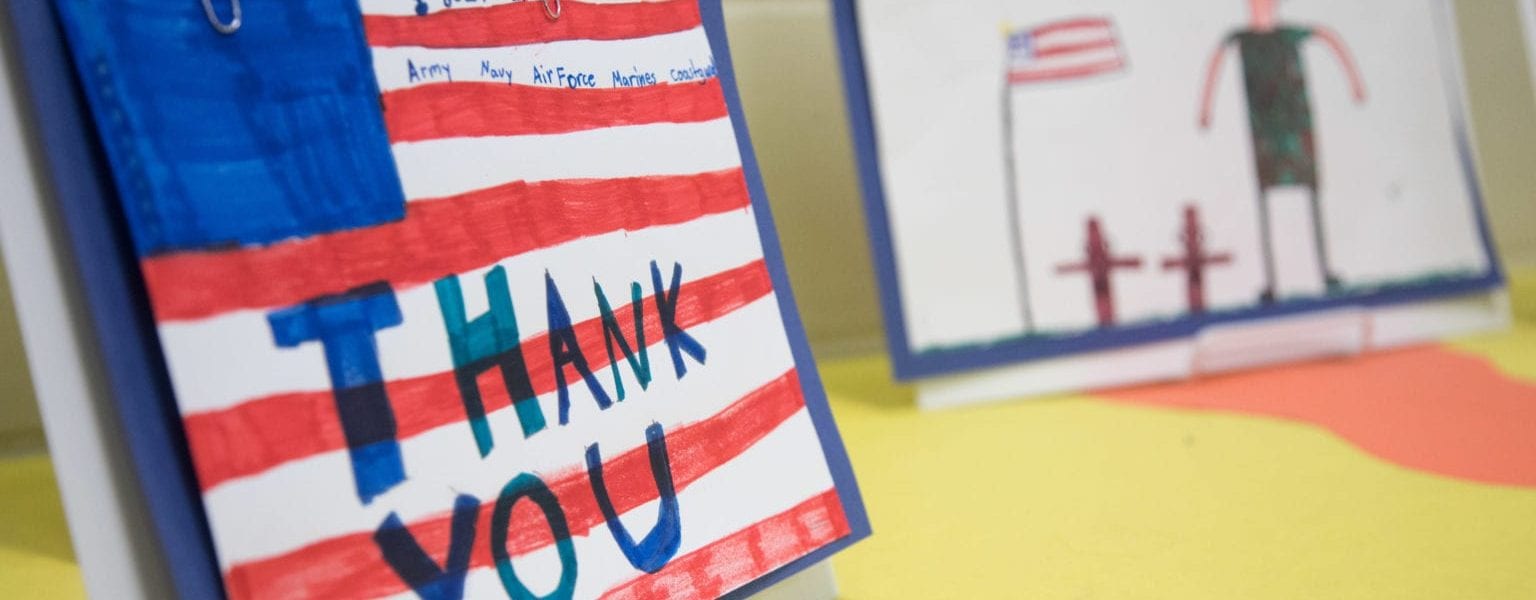 Army Navy Air Force Marines coastgua
THANK
YOU